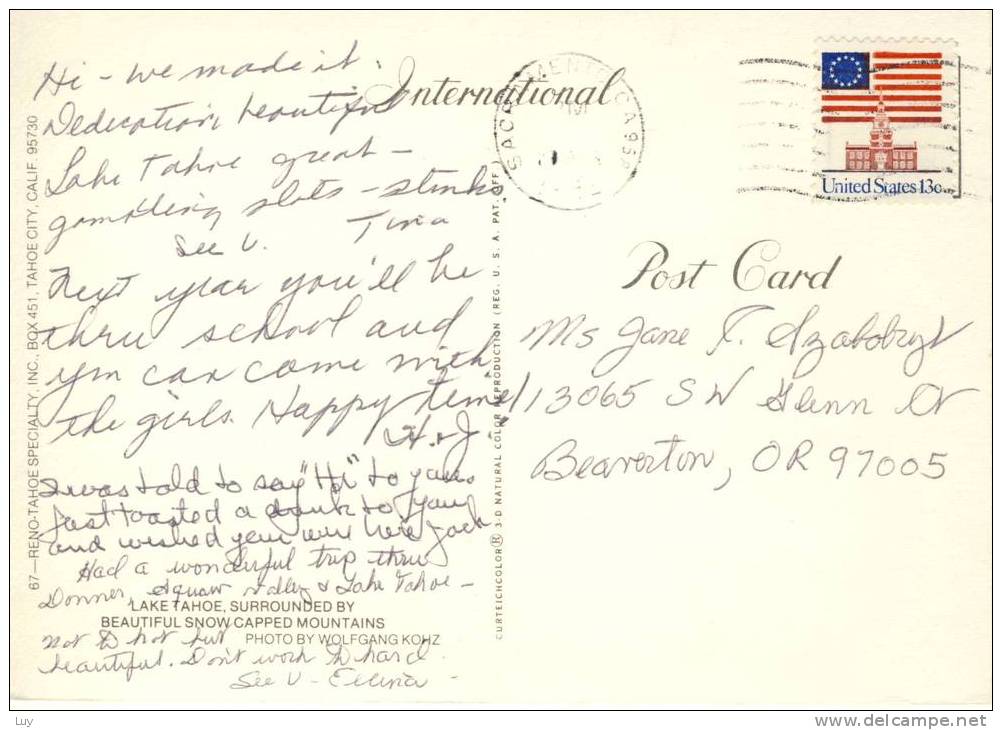 International
SAC MENT CA 958
PM
United States 13c
Post Card
Hi - we made it.
Dedication beautiful
Lake Tahoe great -
gambling slots - stinks
See U. Tina
Next year you'll be
thru school and
you can come with
the girls. Happy times!
H. & J.
I was told to say "Hi" to you.
Just toasted a drink to you
and wished you were here Jack
Had a wonderful trip thru
Donner, Squaw Valley & Lake Tahoe -
Not to hot but
beautiful. Don't work to hard.
See U -
Ms Jane T.
13065 SW Glenn Ct
Beaverton, OR 97005
LAKE TAHOE, SURROUNDED BY
BEAUTIFUL SNOW CAPPED MOUNTAINS
PHOTO BY WOLFGANG KOHZ
67—RENO-TAHOE SPECIALTY, INC., BOX 451, TAHOE CITY, CALIF. 95730
CURTEICHCOLOR ® 3-D NATURAL COLOR REPRODUCTION (REG. U. S. A. PAT. OFF.)
Luy
delcampe.net